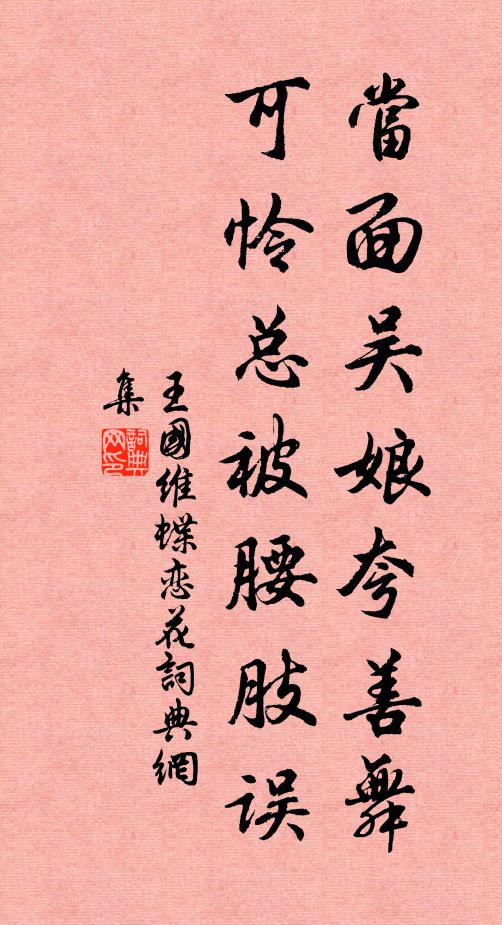 當面吴娘夸善舞
可怜总被腰肢误
王國維蝶恋花詞典網
集
詞典网印